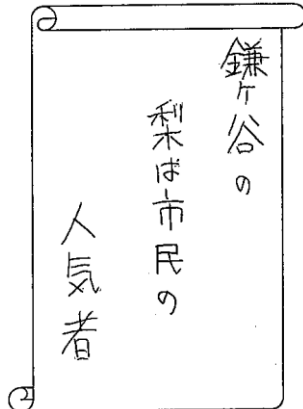 鎌ヶ谷の
梨は市民の
人気者